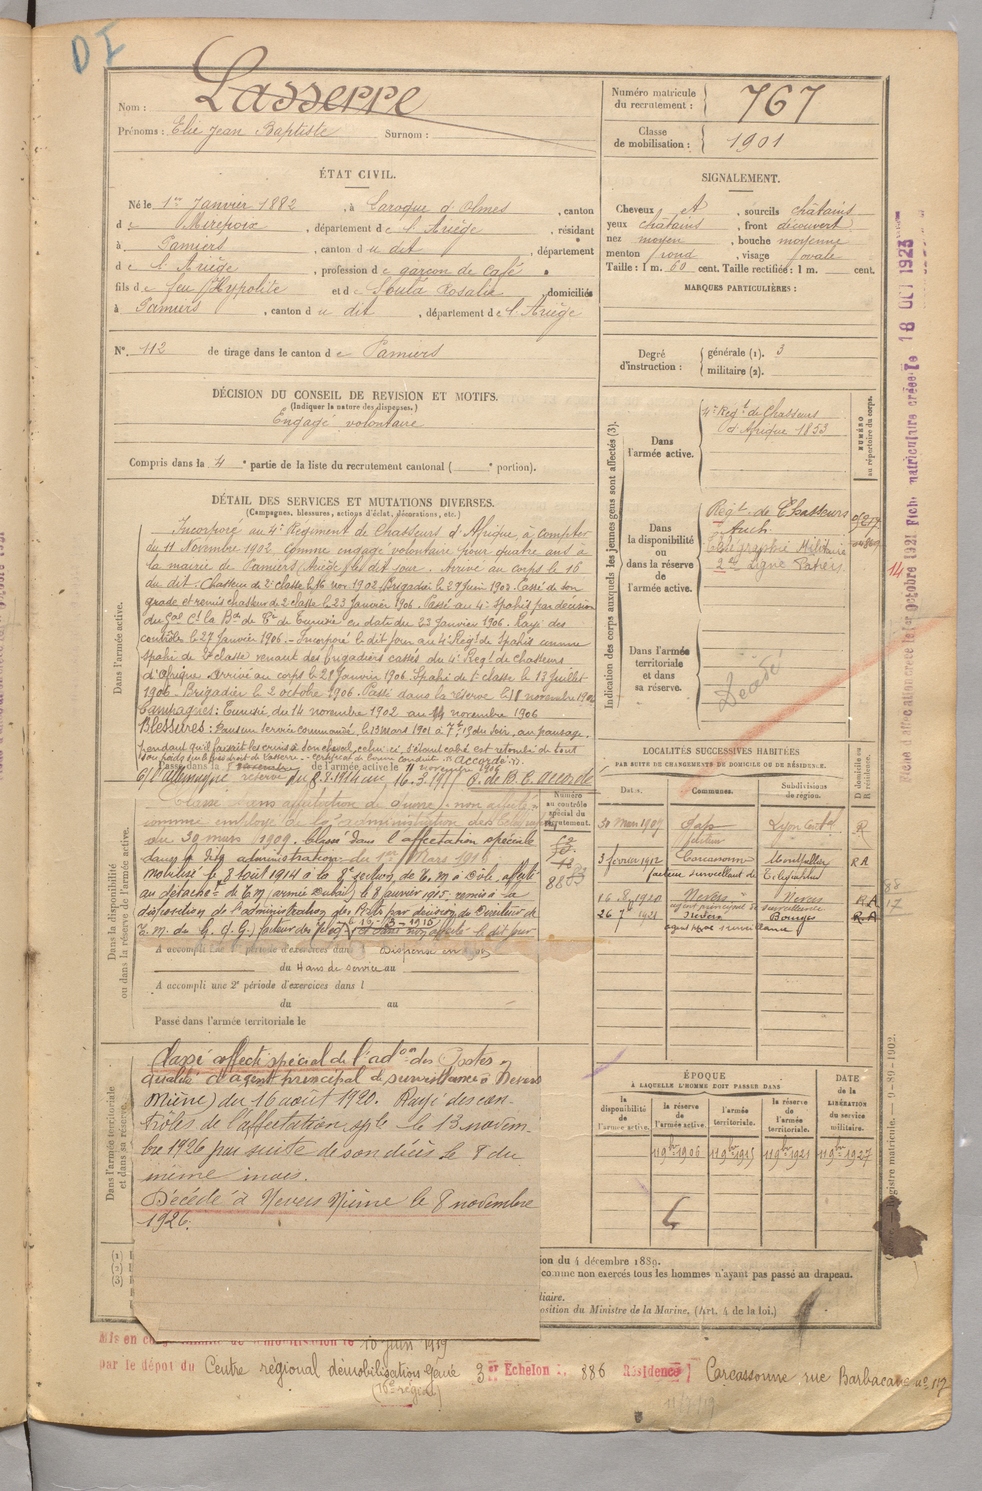 DI
Nom : Lasserre
Prénoms : Elie Jean Baptiste Surnom :
Numéro matricule du recrutement : 767
Classe de mobilisation : 1901
ÉTAT CIVIL.
Né le 1er Janvier 1882, à Laroque d'Olmes, canton
de Mirepoix, département de l'Ariège, résidant
à Pamiers, canton du dit, département
de l'Ariège, profession de garçon de café
fils de feu Hypolite et de Soula Rosalie, domiciliés
à Pamiers, canton du dit, département de l'Ariège
N° 112 de tirage dans le canton de Pamiers
SIGNALEMENT.
Cheveux et, sourcils châtains
yeux châtains, front découvert
nez moyen, bouche moyenne
menton rond, visage ovale
Taille : 1 m. 60 cent. Taille rectifiée : 1 m. cent.
MARQUES PARTICULIÈRES :
Degré d'instruction : générale (1). 3
militaire (2).
DÉCISION DU CONSEIL DE REVISION ET MOTIFS.
(Indiquer la nature des dispenses.)
Engagé volontaire
Compris dans la 4e partie de la liste du recrutement cantonal ( e portion).
DÉTAIL DES SERVICES ET MUTATIONS DIVERSES.
(Campagnes, blessures, actions d'éclat, décorations, etc.)
Dans l'armée active.
Incorporé au 4e Régiment de Chasseurs d'Afrique, à compter
du 11 Novembre 1902, comme engagé volontaire pour quatre ans à
la mairie de Pamiers, Ariège, le dit jour. Arrivé au corps le 16
du dit. Chasseur de 2e classe le 16 nov 1902, Brigadier le 27 juin 1903. Cassé de son
grade et remis chasseur de 2 classe le 23 Janvier 1906. Passé au 4e Spahis par décision
du Gal Ct la Bde de Tunisie en date du 23 Janvier 1906. Rayé des
contrôles le 27 Janvier 1906. - Incorporé le dit jour au 4e Régt de Spahis comme
spahi de 2e classe venant des brigadiers cassés du 4e Régt de Chasseurs
d'Afrique. Arrivé au corps le 29 Janvier 1906. Spahi de 1e classe le 13 Juillet
1906. Brigadier le 2 octobre 1906. Passé dans la réserve le 11 novembre 1906
Campagnes : Tunisie, du 14 novembre 1902 au novembre 1906
Blessures : Dans un service commandé, le 19 mars 1901 à 7h du soir, au pansage,
pendant qu'il faisait les crins à son cheval, celui-ci, s'étant cabré est retombé de tout
son poids Certificat de bonne conduite : "accordé".
Passé dans la réserve de l'armée active le 11 novembre 1906
C/ l'Allemagne du 8-8-1914 au 16-3-1915 C. de B. C. accordé
Indication des corps auxquels les jeunes gens sont affectés (3).
Dans l'armée active.
4e Régt de Chasseurs
d'Afrique 1853
NUMÉRO au répertoire du corps.
Dans la disponibilité ou dans la réserve de l'armée active.
Régt de Chasseurs
Auch
Télégraphie Militaire
2e Ligne
Dans l'armée territoriale et dans sa réserve.
Décédé
LOCALITÉS SUCCESSIVES HABITÉES
PAR SUITE DE CHANGEMENTS DE DOMICILE OU DE RÉSIDENCE.
Dates. Communes. Subdivisions de région. D domicile ou R résidence.
30 Mars 1907 Gap Lyon R
3 février 1912 Carcassonne Montpellier RA
facteur surveillant de Télégraphes
16. 8. 1920 Nevers Nevers RA
agent principal de surveillance
26 7bre 1921 Nevers Bourges R.A
agent ppal surveillance
Numéro au contrôle spécial du recrutement.
Dans la disponibilité ou dans la réserve de l'armée active.
Classé dans affectation de guerre, non affecté,
comme employé de l'administration des Télég
du 30 mars 1909. Classé dans l'affectation spéciale
dans la dite administration du 1er Mars 1912
mobilisé le 8 août 1914 à la 8e section de T.M à Dôle, affecté
au détachet de T.M (armée Dubail) le 8 janvier 1915. remis à la
disposition de l'administration des Postes par décision du Directeur de
T.M. du G.Q.G.
A accompli une 1e période d'exercices dans Dispensé
du 4 ans de service au
A accompli une 2e période d'exercices dans l
du au
Passé dans l'armée territoriale le
Dans l'armée territoriale et dans sa réserve.
Classé affecté spécial de l'adon des Postes en
qualité d'agent principal de surveillance à Nevers
(Nièvre) du 16 août 1920. Rayé des con-
trôles de l'affectation sple le 13 novem-
bre 1926 par suite de son décès le 8 du
même mois.
Décédé à Nevers Nièvre le 8 novembre
1926.
ÉPOQUE
À LAQUELLE L'HOMME DOIT PASSER DANS
la disponibilité de l'armée active. la réserve de l'armée active l'armée territoriale. la réserve de l'armée territoriale.
DATE de la LIBÉRATION du service militaire.
11 9bre 1906 11 9bre 1915 11 9bre 1921 11 9bre 1927
(1)
(2)
(3)
ion du 4 décembre 1889.
comme non exercés tous les hommes n'ayant pas passé au drapeau.
diaire.
position du Ministre de la Marine. (Art. 4 de la loi.)
Mis en congé le 10 Juin 1919
par le dépôt du Centre régional démobilisation Génie 3e Échelon N° 886 Résidence] Carcassonne, rue Barbacane n° 117
(16e région)
Fiche matriculaire créée le 18 OCT 1923
Registre matricule. — 9-89-1902.